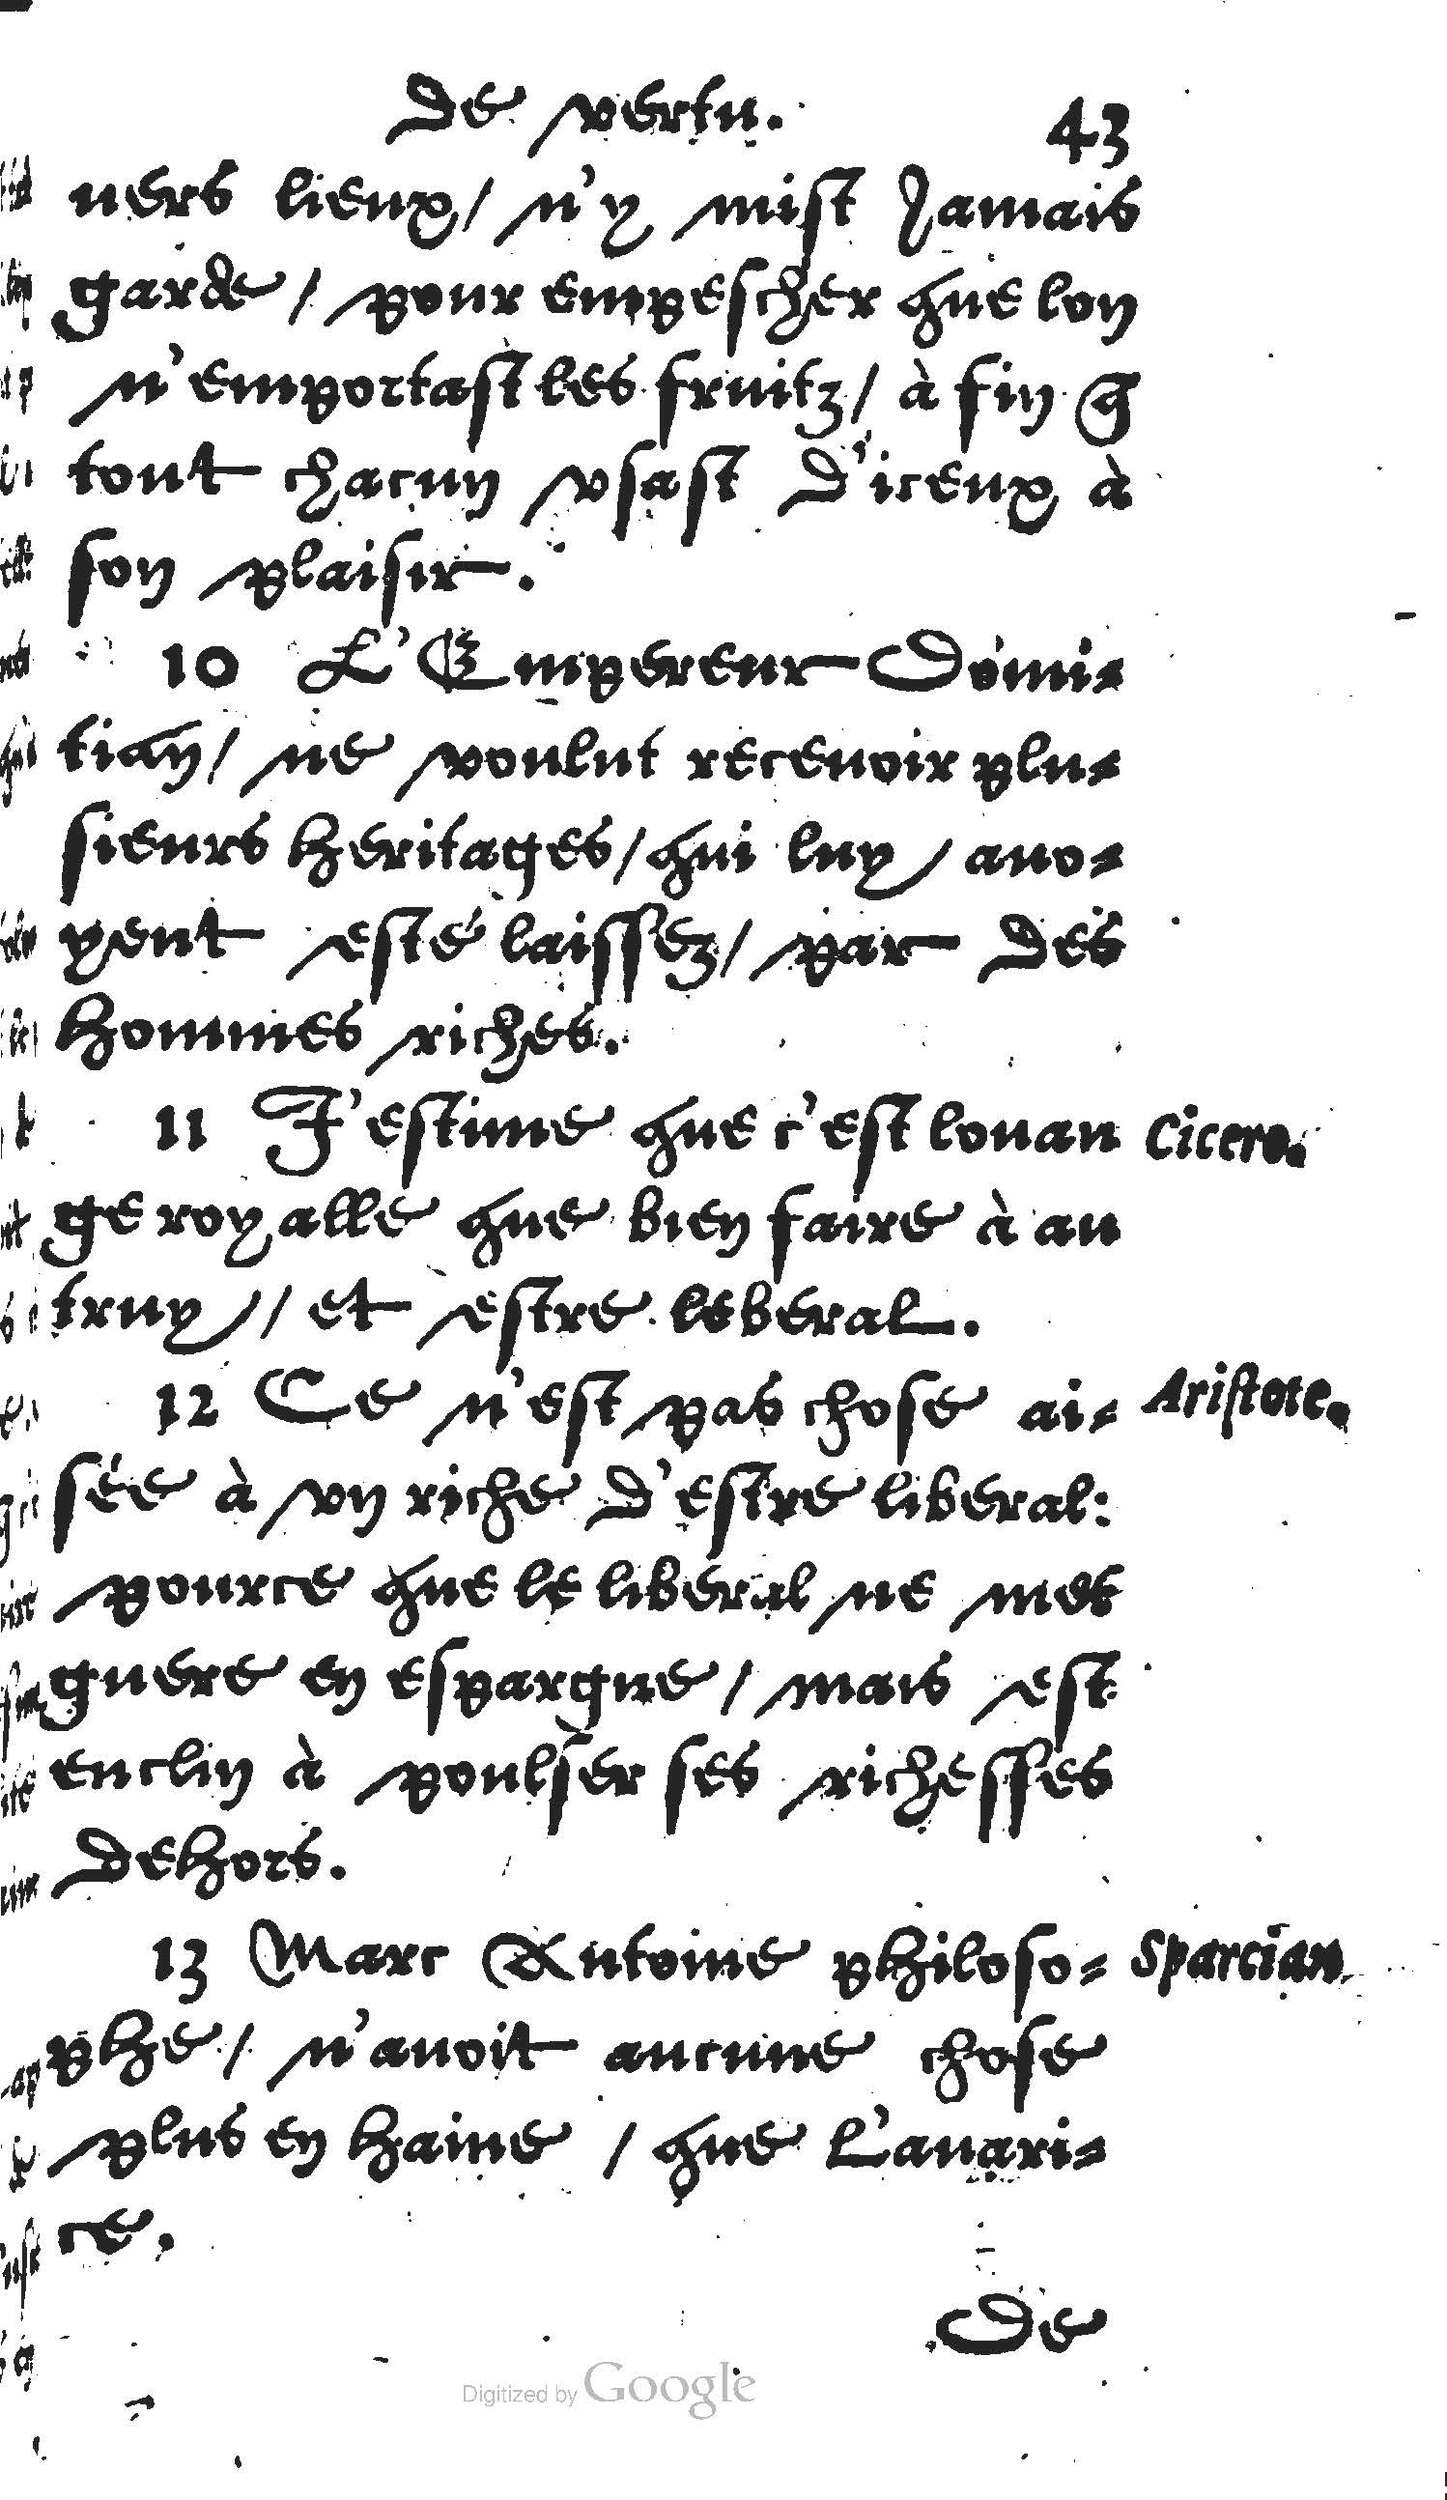 De vertu. 43
uers lieux/ n'y mist Jamais
garde/ pour empescher que lon
n'emportast les fruitz/ à fin q̃
tout chacun vsast d'iceux à
son plaisir.
10 L'Empereur Domi-
tian/ ne voulut receuoir plu-
sieurs heritages/ qui luy auo-
yent esté laissez/ par des
hommes riches.
11 J'estime que c'est louan Cicero.
ge royalle que bien faire à au
truy// et estre leberal.
12 Ce n'est pas chose ai- Aristote.
sée à vn riche d'estre liberal:
pource que le liberal ne met
guere en espargne/ mais est
enclin à poulser ses richesses
dehors.
13 Marc Antoine philoso- Sparcian
phe/ n'auoit aucune chose
plus en haine / que l'auari-
ce.
De
Digitized by Google